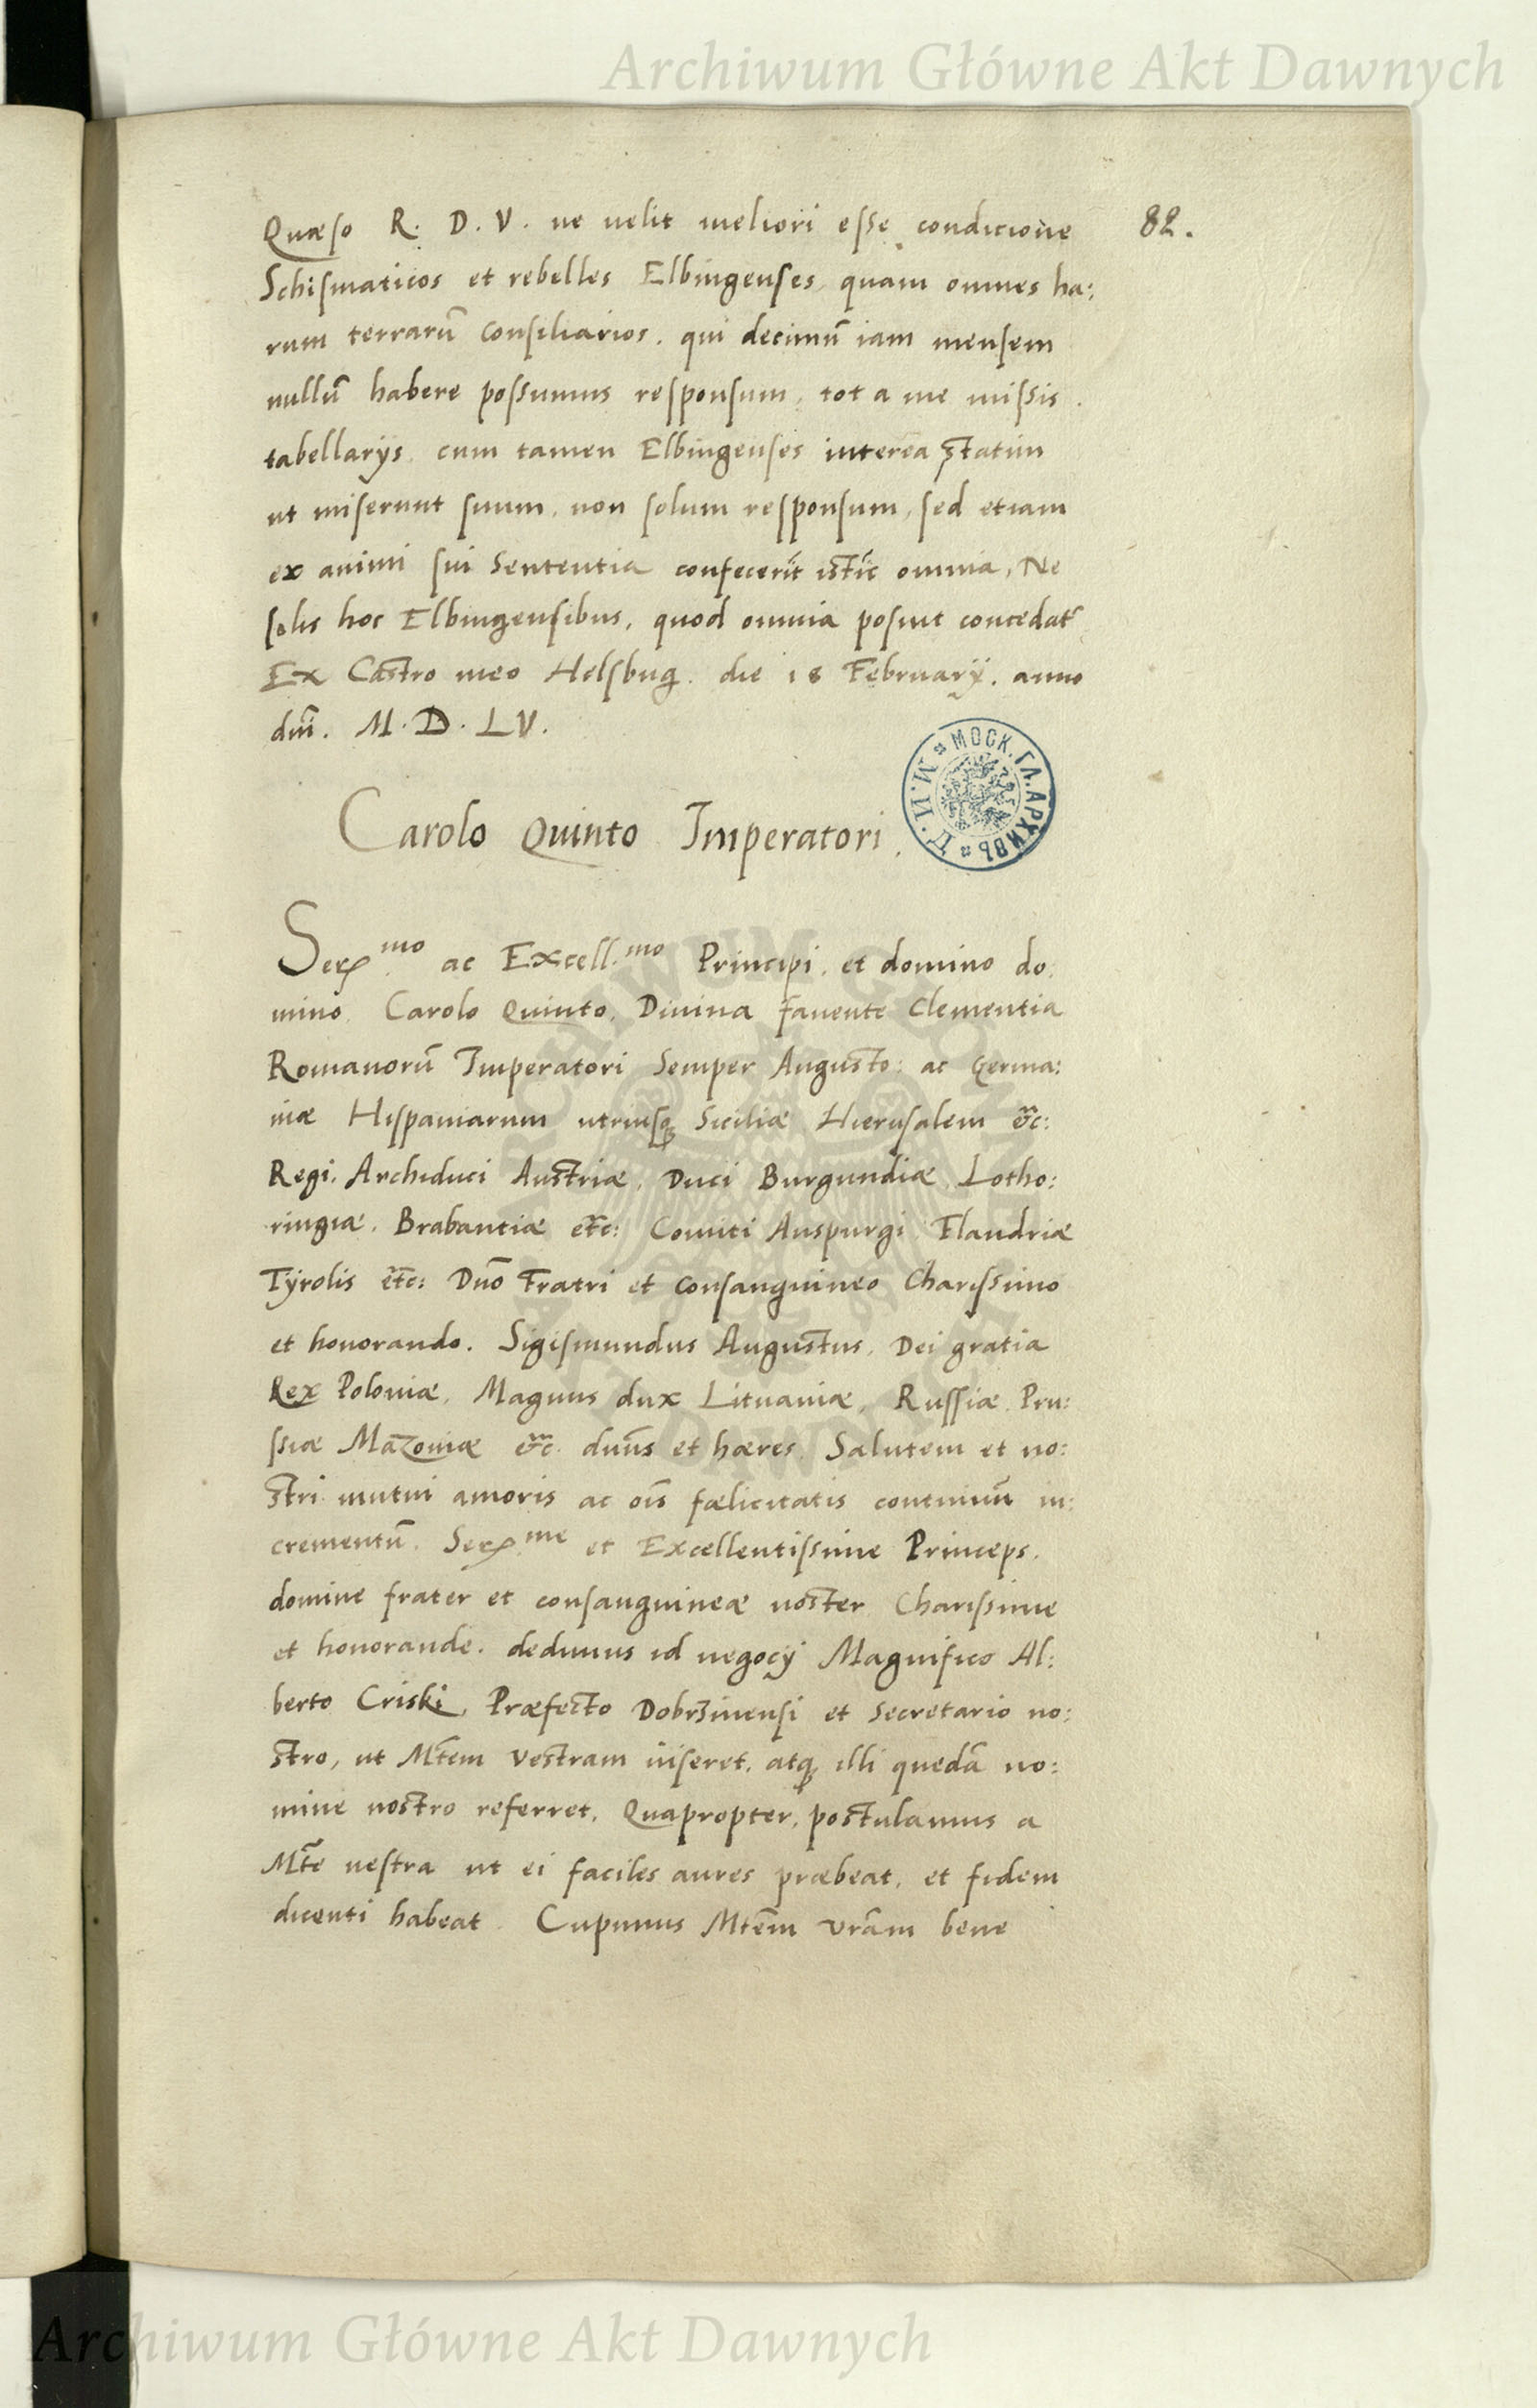 Archiwum Główne Akt Dawnych
82.
Quæso R. D. V. ne uelit meliori esse condicione
Schismaticos et rebelles Elbingenses, quam omnes ha:
rum terrarū Consiliarios, qui decimū iam mensem
nullū habere possumus responsum, tot a me missis
tabellarijs, cum tamen Elbingenses interea statim
ut miserunt suum, non solum responsum, sed etiam
ex animi sui Sententia confecerīt istīc omnia, Ne
solis hoc Elbingensibus, quod omnia posint concedat
Ex Castro meo Helsbug. die 18 Februarij. anno
dn̄i. M. D. LV.
Carolo Quinto Imperatori.
МОСК. ГЛ. АРХИВЪ
Ser.mo ac Excell.mo Principi, et domino do:
mino Carolo Quinto, Diuina fauente Clementia
Romanorū Imperatori Semper Augusto: ac Germa:
niæ Hispaniarum utriusq Siciliæ Hierusalem &c:
Regi, Archiduci Austriæ, Duci Burgundiæ, Lotho:
ringiæ, Brabantiæ etc: Comiti Auspurgi Flandriæ
Tÿrolis etc: Dn̄o Fratri et Consanguineo Charissimo
et honorando. Sigismundus Augustus, Dei gratia
Rex Poloniæ, Magnus dux Lituaniæ, Russiæ, Pru:
ssiæ Mazouiæ &c. dn̄us et hæres. Salutem et no:
stri mutui amoris ac oīs fælicitatis continuū in:
crementū. Ser.me et Excellentissime Princeps,
domine frater et consanguineæ noster Charissime
et honorande. dedimus id negocij Magnifico Al:
berto Criski, Præfecto Dobrzinensi et Secretario no:
stro, ut Mt̄em Vestram inseret, atq illi quedā no:
mine nostro referret, Quapropter, postulamus a
Mt̄e uestra ut ei faciles aures præbeat, et fidem
dicenti habeat. Cupimus Mtēm vrām bene
Archiwum Główne Akt Dawnych